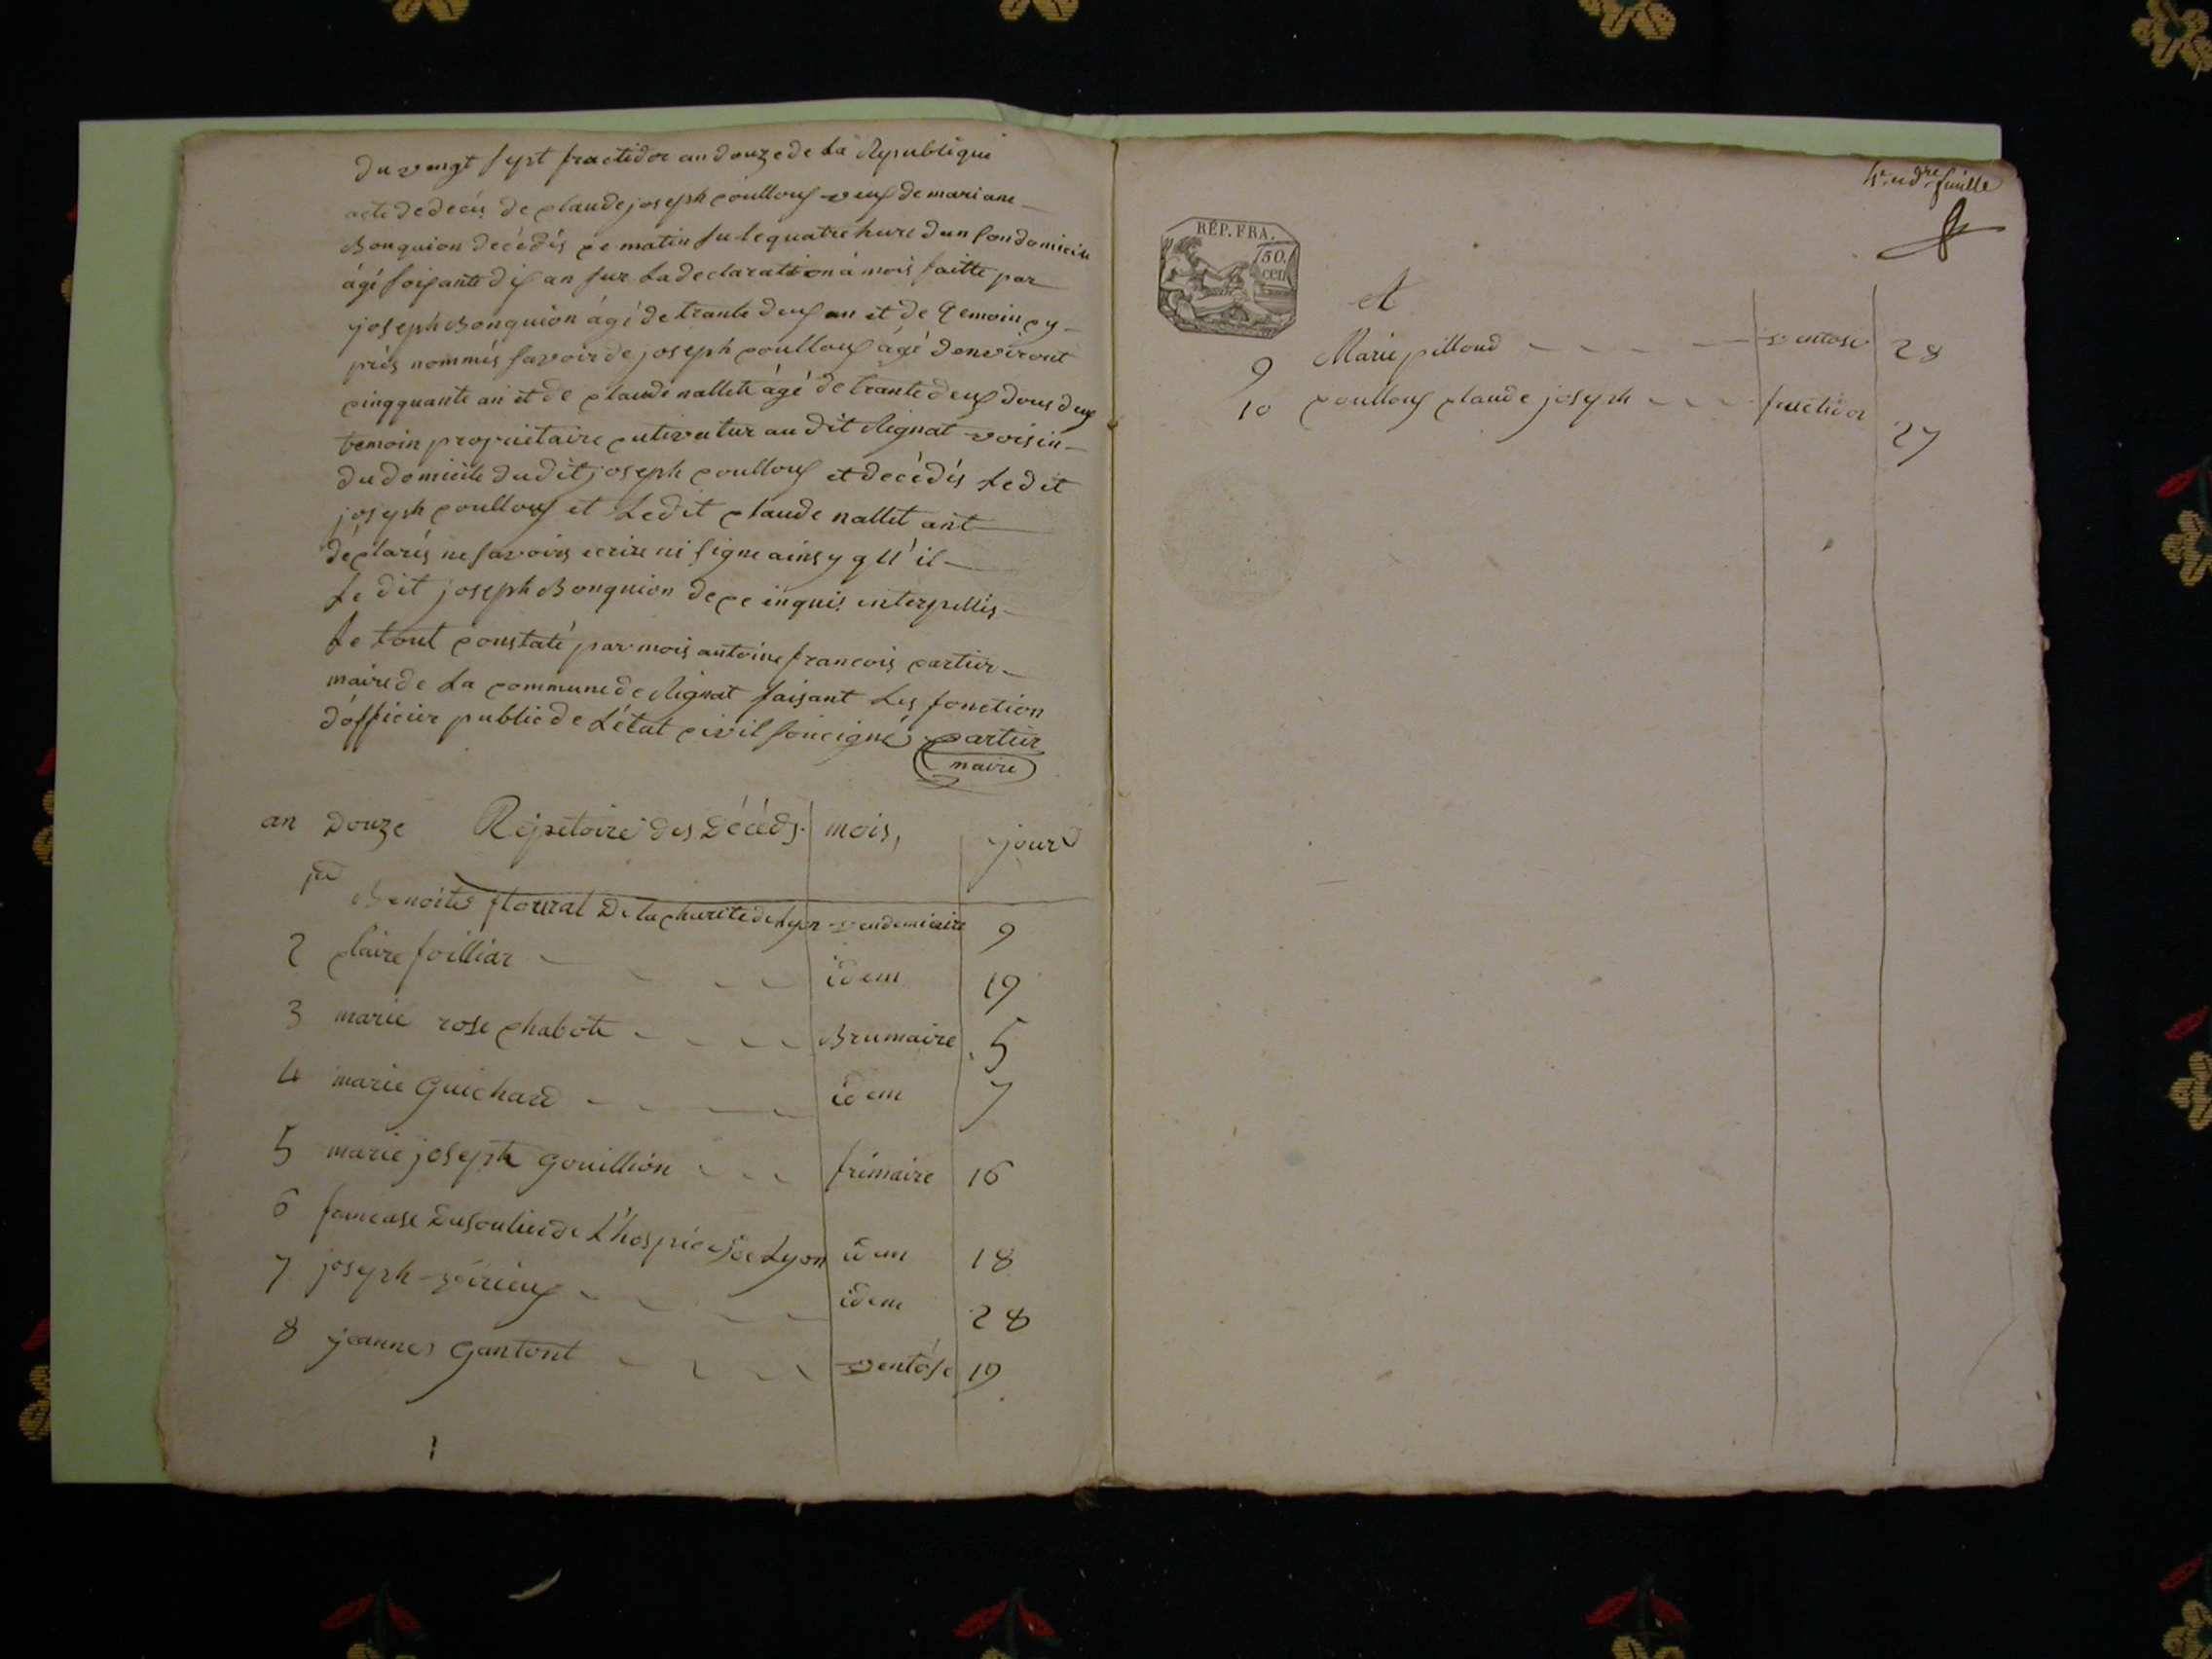 du vingt sept fructidor an douze de la Republique
acte de decés de claude joseph coulloux veuf de mariane
Bonguion decédés ce matin su le quatre hure dan son domicile
ágé soisante dix an sur la declaration á mois faitte par
joseph Bonguion ágé de trante deux an et de temoin cy
prés nommés savoir de joseph coulloux ágé d'environt
cinqquante an et de claude nallet ágé de trante deux dous deux
temoin propriétaire cutivatur audit Rignat voisin
du domicile dudit joseph coulloux et decédés ledit
joseph coulloux et ledit claude nallet ant
déclarés ne savoirs ecrire ni signe ainsy qu'il
le dit joseph Bonguion de ce inquis interpellés
le tout constaté par mois antoine francois cartier
maire de la commune de Rignat faisant les fonction
d'officier public de l'état civil soucigné cartier
maire
an douze Repetoire des Décéds mois, jour
Benoite floural De la charité de lyon vendemiaire 9
2 claire foilliar idem 19
3 marie rose chabot Brumaire 5
4 marie Guichard idem 7
5 marie joseph Gouillion frimaire 16
6 De L'hospice de Lyon idem 18
7 joseph idem 28
8 jeanne Gantont ventóse 19
feuille
RÉP. FRA.
50.
cen
9 Marie pilloud ventose 28
10 coulloux claude joseph fructidor 27